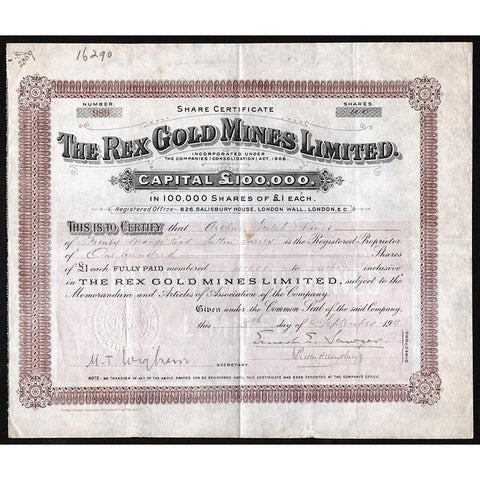 16290
NUMBER.
989
SHARE CERTIFICATE
SHARES.
100
THE REX GOLD MINES LIMITED.
INCORPORATED UNDER
THE COMPANIES (CONSOLIDATION) ACT, 1908.
CAPITAL £100,000.
IN 100,000 SHARES OF £1 EACH.
Registered Office – 626, SALISBURY HOUSE, LONDON WALL, LONDON, E.C.
THIS IS TO CERTIFY that
of is the Registered Proprietor
of One hundred Shares
of £1 each FULLY PAID numbered to inclusive
in THE REX GOLD MINES LIMITED, subject to the
Memorandum and Articles of Association of the Company.
Given under the Common Seal of the said Company,
this day of September 191
Ernest E. Sawyer
DIRECTORS.
SECRETARY.
NOTE – NO TRANSFER OF ANY OF THE ABOVE SHARES CAN BE REGISTERED UNTIL THIS CERTIFICATE HAS BEEN DEPOSITED AT THE COMPANY'S OFFICE.